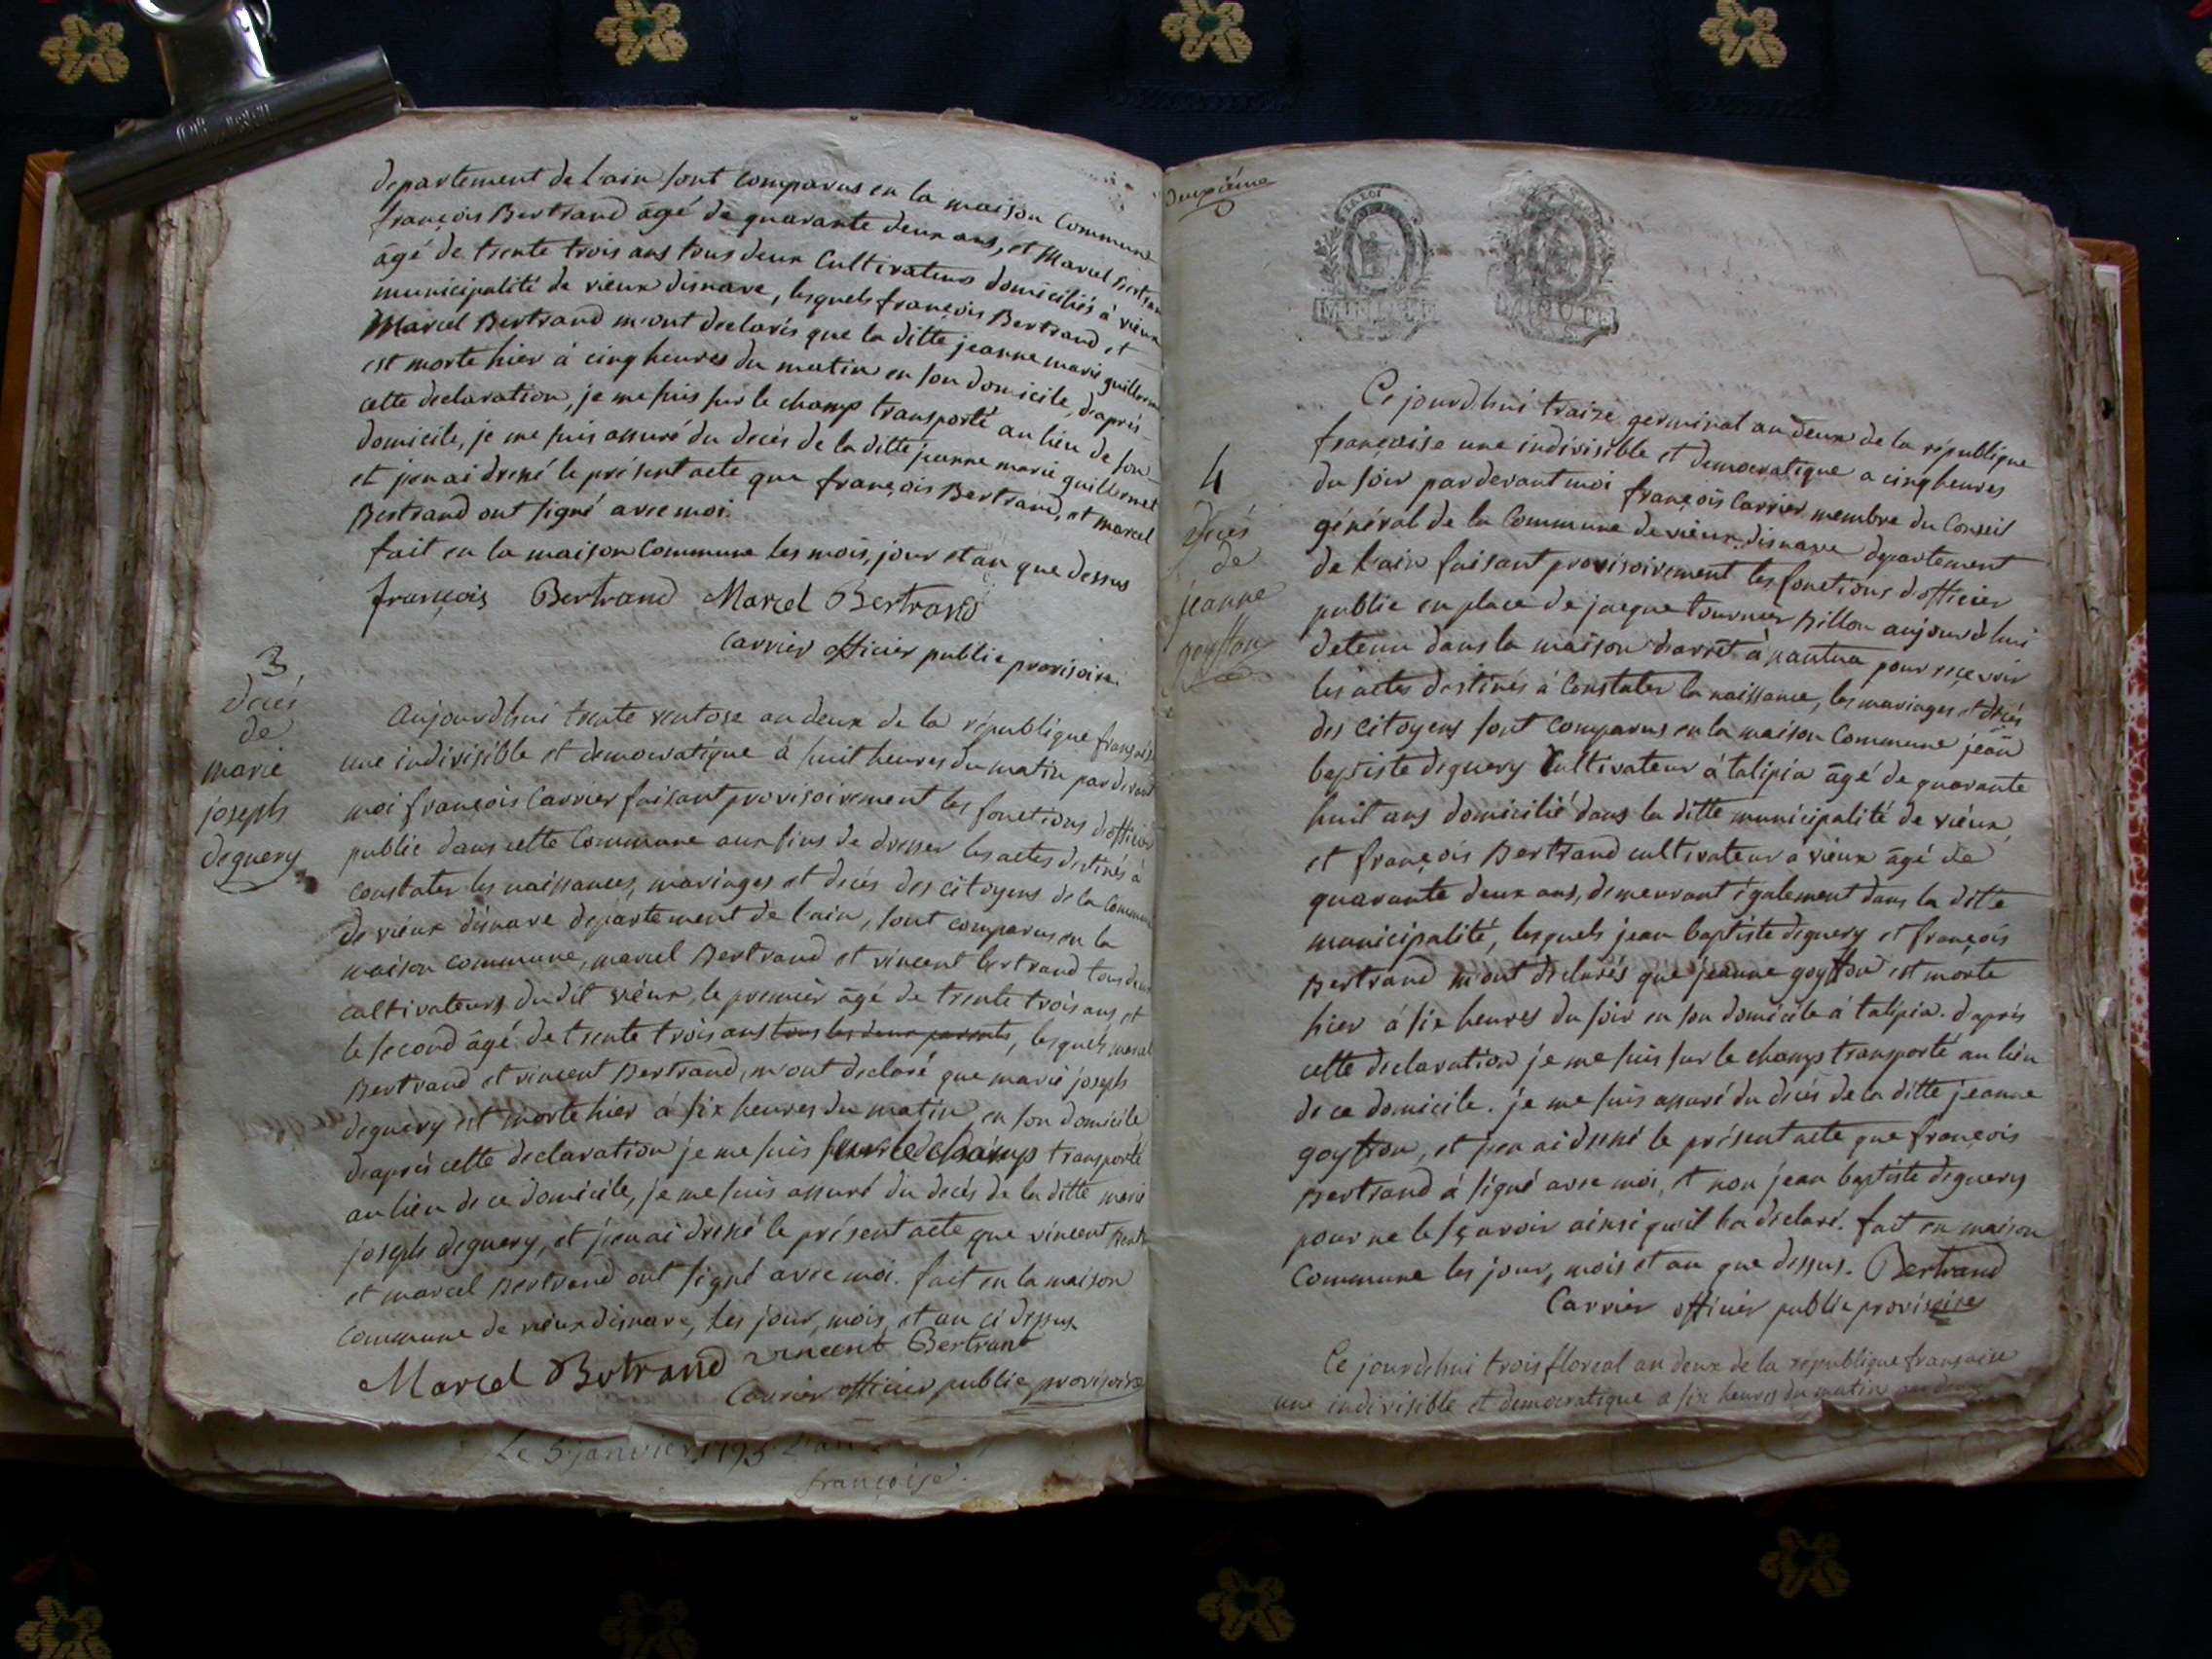 departement de l'ain sont comparus en la maison commune
françois Bertrand âgé de quarante deux ans, et Marcel Bertran
âgé de trente trois ans tous deux cultivateurs domiciliés à vieux
municipalité de vieux disnave, lesquels françois Bertrand et
Marcel Bertrand m'ont declarés que la ditte jeanne marie guillermet
est morte hier à cinq heures du matin en son domicile, d'aprés
cette declaration, je me suis sur le champ transporté au lieu de son
domicile, je me suis assuré du decés de la ditte jeanne marie guillermet
et j'en ai dressé le présent acte que françois Bertrand, et marcel
Bertrand ont signé avec moi.
fait en la maison commune les mois, jour et an que dessus
françois Bertrand Marcel Bertrand
Carrier officier public provisoire.
3
decés
de
marie
joseph
deguery
Aujourd'hui trente ventose an deux de la république françoise
une indivisible et democratique à huit heures du matin par devant
moi françois Carrier faisant provisoirement les fonctions d'officier
public dans cette commune aux fins de dresser les actes destinés à
constater les naissances, mariages et decés des citoyens de la commune
de vieux disnave departement de l'ain, sont comparus en la
maison commune, marcel Bertrand et vincent bertrand tous deux
cultivateurs dudit vieux, le premier âgé de trente trois ans et
le second âgé de trente trois ans tous les deux parents, lesquels marcel
Bertrand et vincent Bertrand, m'ont declaré que marie joseph
deguery est morte hier à six heures du matin en son domicile
d'aprés cette declaration je me suis sur le champ transporté
au lieu de ce domicile, je me suis assuré du decés de la ditte marie
joseph deguery, et j'en ai dressé le présent acte que vincent Bert
et marcel Bertrand ont signé avec moi. fait en la maison
commune de vieux disnave, les jour, mois, et an ci dessus
Marcel Bertrand vincent Bertrant
Carrier officier public provisoire
Le 5 janvier 1793 L'an
françoise.
deuxiéme
LA LOI
MINUTE
MINUTE
4
decés
de
jeanne
goyffon
Ce jourd'hui traize germinal an deux de la république
françoise une indivisible et democratique a cinq heures
du soir par devant moi françois Carrier membre du Conseil
général de la Commune de vieux disnave departement
de l'ain faisant provisoirement les fonctions d'officier
public en place de jacque tournier Billon aujourd'hui
detenu dans la maison d'arrêt à nantua pour recevoir
les actes destinés à constater la naissance, les mariages et decés
des citoyens sont comparus en la maison commune jean
baptiste deguery Cultivateur à talipia âgé de quarante
huit ans domicilié dans la ditte municipalité de vieux
et françois Bertrand cultivateur a vieux âgé de
quarante deux ans, demeurant également dans la dite
municipalité, lesquels jean baptiste deguery et françois
Bertrand m'ont declarés que jeanne goyffon est morte
hier à six heures du soir en son domicile à talipia. d'aprés
cette declaration je me suis sur le champs transporté au lieu
de ce domicile. je me suis assuré du decés de la ditte jeanne
goyffon, et j'en ai dressé le présent acte que françois
Bertrand à signé avec moi, et non jean baptiste deguery
pour ne le sçavoir ainsi qu'il l'a declaré. fait en maison
commune les jour, mois et an que dessus. Bertrand
Carrier officier public provisoire
Ce jourd'hui trois floreal an deux de la république françoise
une indivisible et democratique a six heures du matin